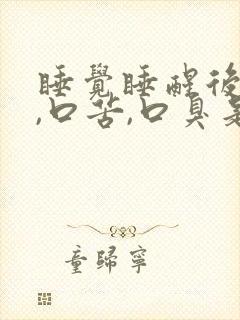 睡覺睡醒後
,口苦,口臭是
童歸寧